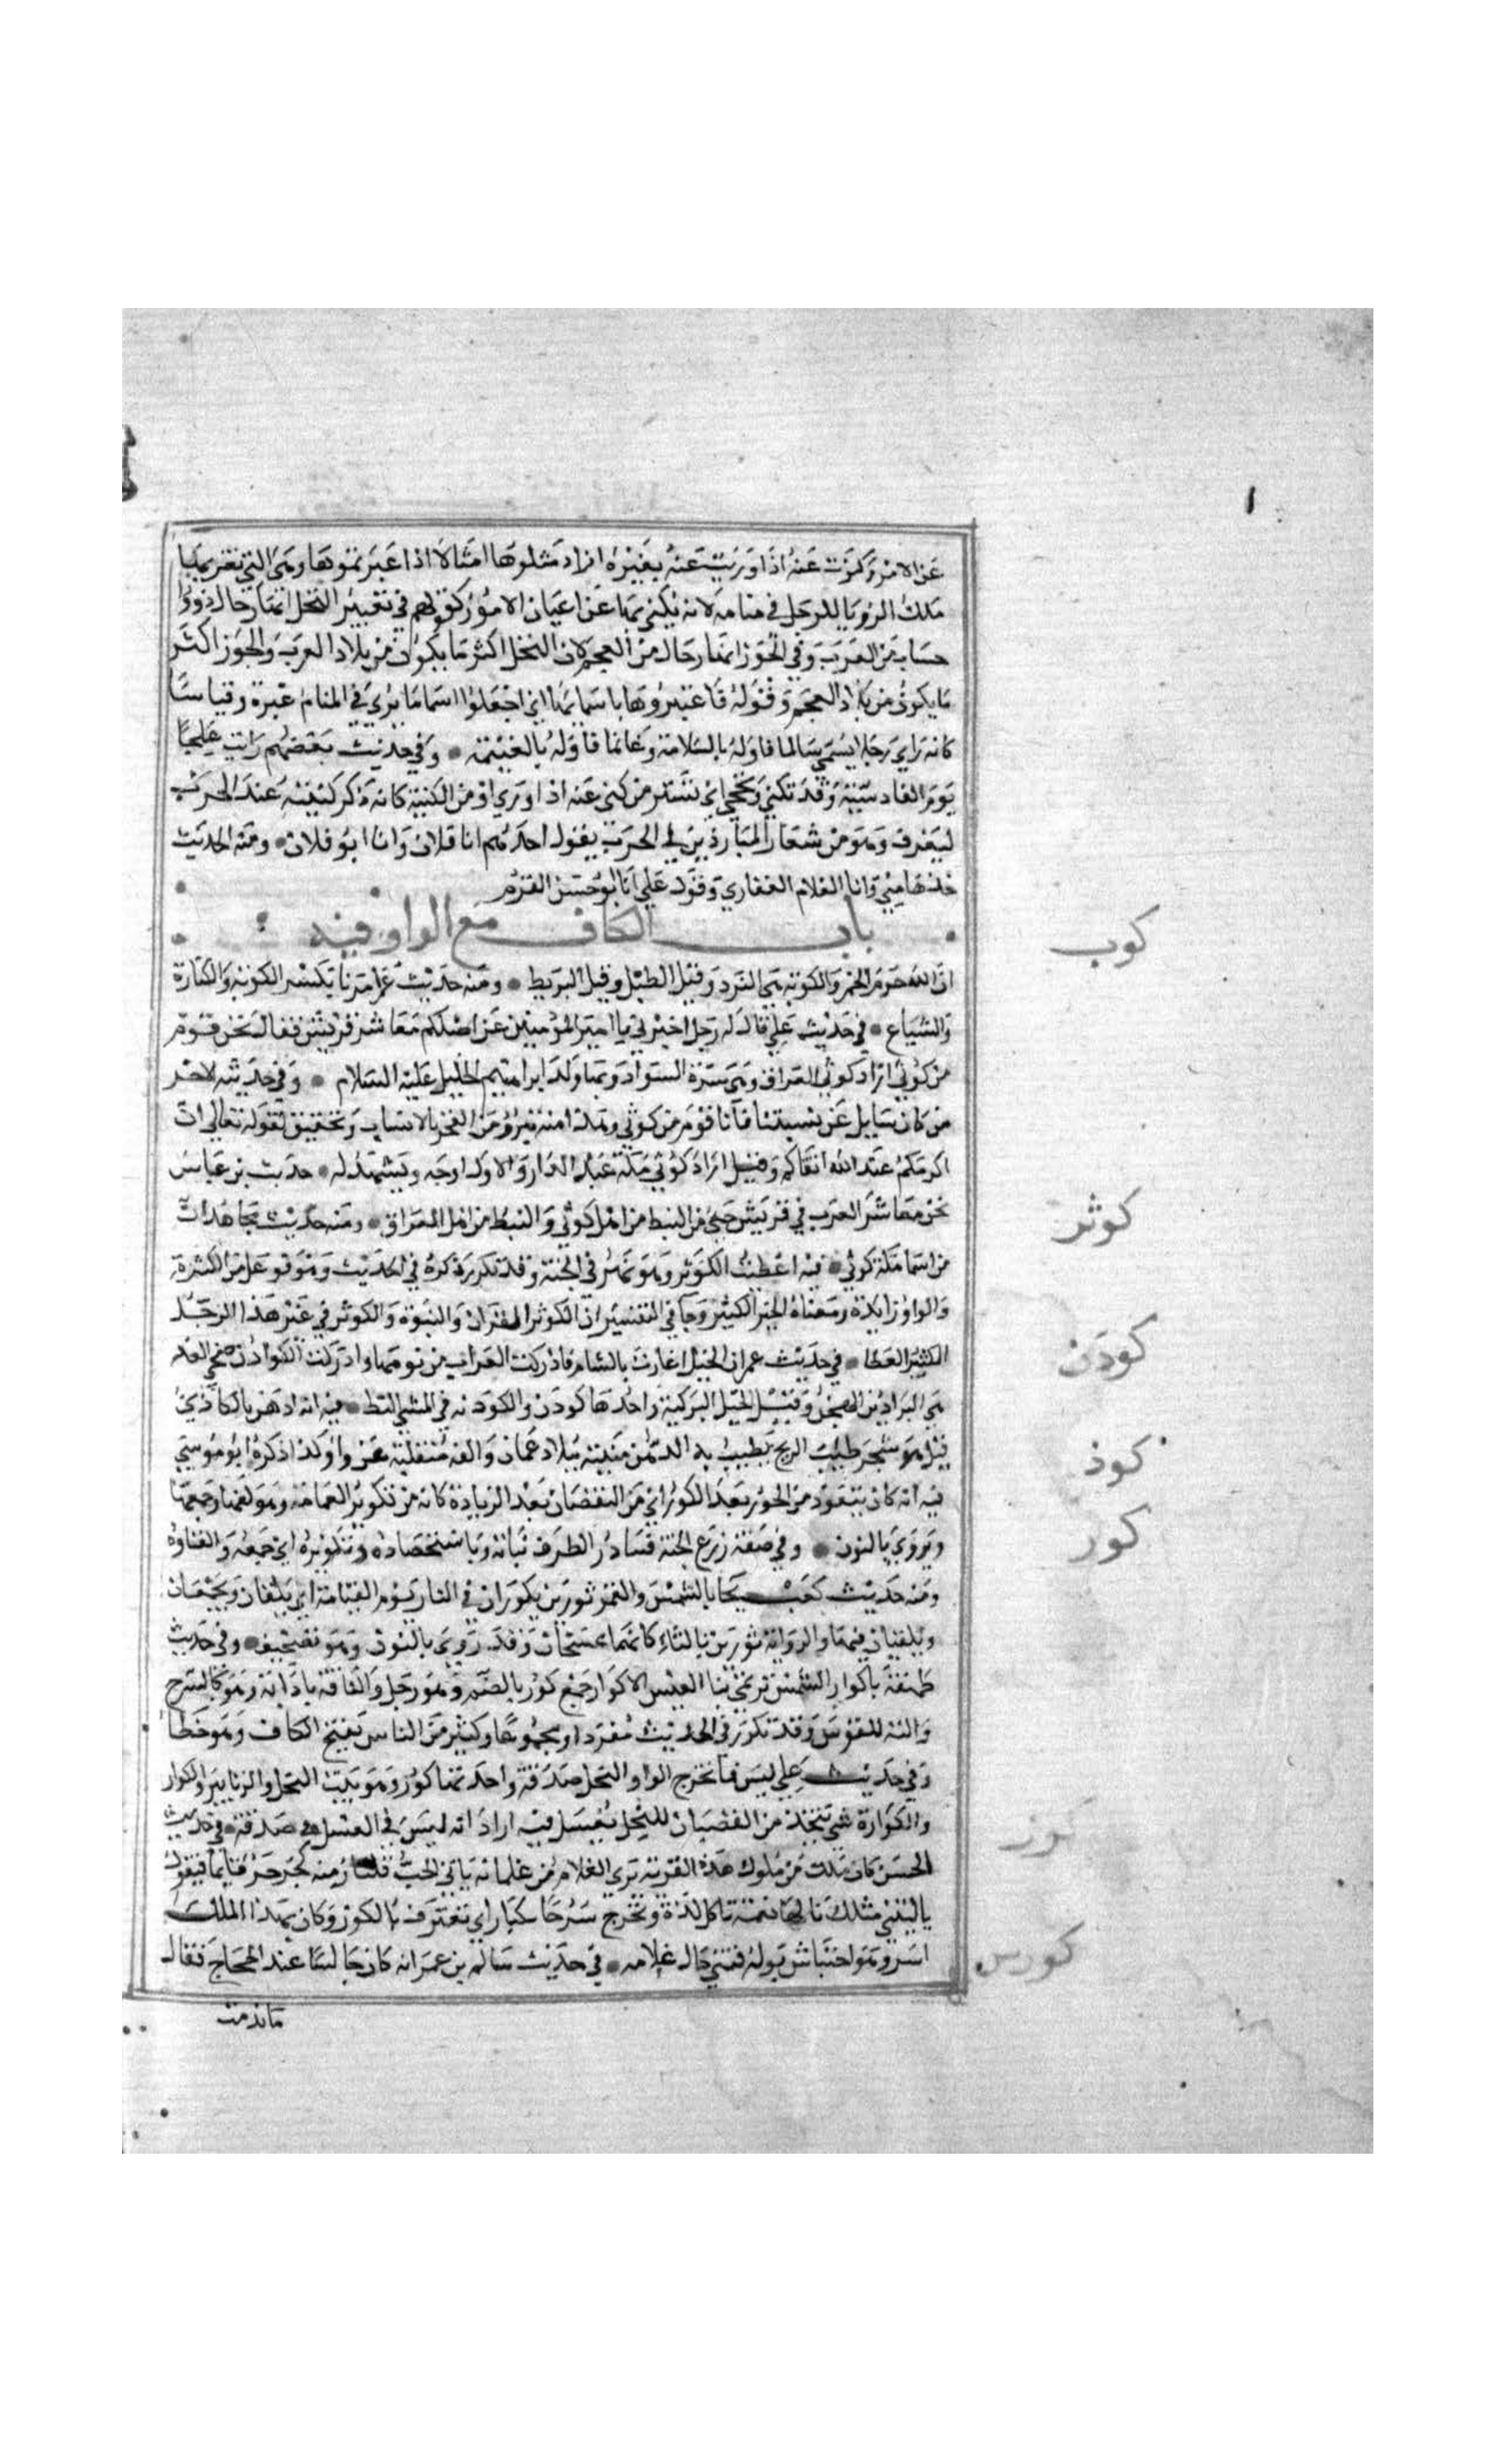 ١
عن الامر وكنوت عنه اذا وريت عنه بغيره اراد مثلوا لها امثالا اذا عبرتموها وهي التي يضربها
ملك الرويا للرجل في منامه لانه يكني بها عن اعيان الامور كقولهم في تعبير النخل انها رجال ذووا
حساب من العرب وفي الجوز انها رجال من العجم لان النخل اكثر ما يكون من بلاد العرب والجوز اكثر
ما يكون من بلاد العجم وقوله فاعتبروها باسمائها اي اجعلوا اسما ما يري في المنام عبرة وقياسا
كانه راي رجلا يسمي سالما فاوله بالسلامة وغانما فاوله بالغنيمة وفي حديث بعضهم رايت علجا
يوم القادسية وقد تكني وتحجي اي تستر من كني عنه اذا وري او من الكنية كانه ذكر كنيته عند الحرب
ليعرف وهو من شعار المبارزين في الحرب يقول احدهم انا فلان وانا ابو فلان ومنه الحديث
خذها مني وانا الغلام الغفاري وقول علي انا ابو حسن القرم
باب الكاف مع الواو فيه
كوب
ان الله حرم الخمر والكوبه هي النرد وقيل الطبل وقيل البربط ومنه حديث علي امرنا بكسر الكوبه والكنارة
والشياع في حديث علي قال له رجل اخبرني يا امير المؤمنين عن اصلكم معاشر قريش فقال نحن قوم
من كوثي اراد كوثي العراق وهي سرة السواد وبها ولد ابراهيم الخليل عليه السلام وفي حديثه الاخر
من كان سايل عن نسبتنا فانا قوم من كوثي وهذا منه تبرؤ من الفخر بالانساب وتحقيق لقوله تعالي ان
اكرمكم عند الله اتقاكم وقيل اراد كوثي مكة محلة عبد الدار والاول اوجه ويشهد له حديث بن عباس
كوثر
نحن معاشر العرب في قريش حي من النبط من اهل كوثي والنبط من اهل العراق ومنه حديث مجاهد ان
من اسما مكة كوثي فيه اعطيت الكوثر وهو نهر في الجنة وقد تكرر ذكره في الحديث وهو فوعل من الكثرة
والواو زايدة ومعناه الخير الكثير وجا في التفسير ان الكوثر القران والنبوة والكوثر في غير هذا الرجل
كودن
الكثير العطا في حديث عمر ان الخيل اغارت بالشام فادركت العراب من يومها وادركت الكوادن ضحي الغد
هي البراذين الهجن وقيل الخيل التركية واحدها كودن والكودنه في المشي البط فيه انه ادهن بالكاذي
كوذ
قيل هو شجر طيب الريح يطيب به الدهن منبته ببلاد عمان والفه منقلبة عن واو كذا ذكره ابو موسي
كور
فيه انه كان يتعوذ من الحور بعد الكور اي من النقصان بعد الزيادة كانه من تكوير العمامة وهو لفها وجمعها
ويروي بالنون وفي صفة زرع الجنة فيبادر الطرف نباته وباستحصاده وتكويره اي جمعه والقاؤه
ومنه حديث كعب يجا بالشمس والقمر ثورين يكوران في النار يوم القيامة اي يلفان ويجمعان
ويلقيان فيها والرواية ثورين بالثاء كانهما يمسخان وقد روي بالنون وهو تصحيف وفي حديث
طهفة باكوار الميس ترتمي بنا العيس الاكوار جمع كور بالضم وهو رحل والناقة باداته وهو كالسرج
والته للفرس وقد تكرر في الحديث مفردا ومجموعا وكثير من الناس بفتح الكاف وهو خطا
وفي حديث علي ليس فيما تخرج اكوار النحل صدقة واحدتها كور وهو بيت النحل والزنابير والكوار
كوز
والكوارة شي يتخذ من القضبان للنحل يعسل فيه اراد انه ليس في العسل صدقة في حديث
الحسن كان ملك من ملوك هذه القرية يري الغلام من غلمانه ياتي الحب فيكتاز منه ثم يجرجر قايما فيقول
يا ليتني مثلك يا لها نعمة تاكل لذة وتخرج سرحا يكتاز اي يغترف بالكوز وكان بهذا الملك
كوس
اسر وهو احتباس بوله فتمني حال غلامه في حديث سالم بن عمر انه كان جالسا عند الحجاج فقال
ما ندمت